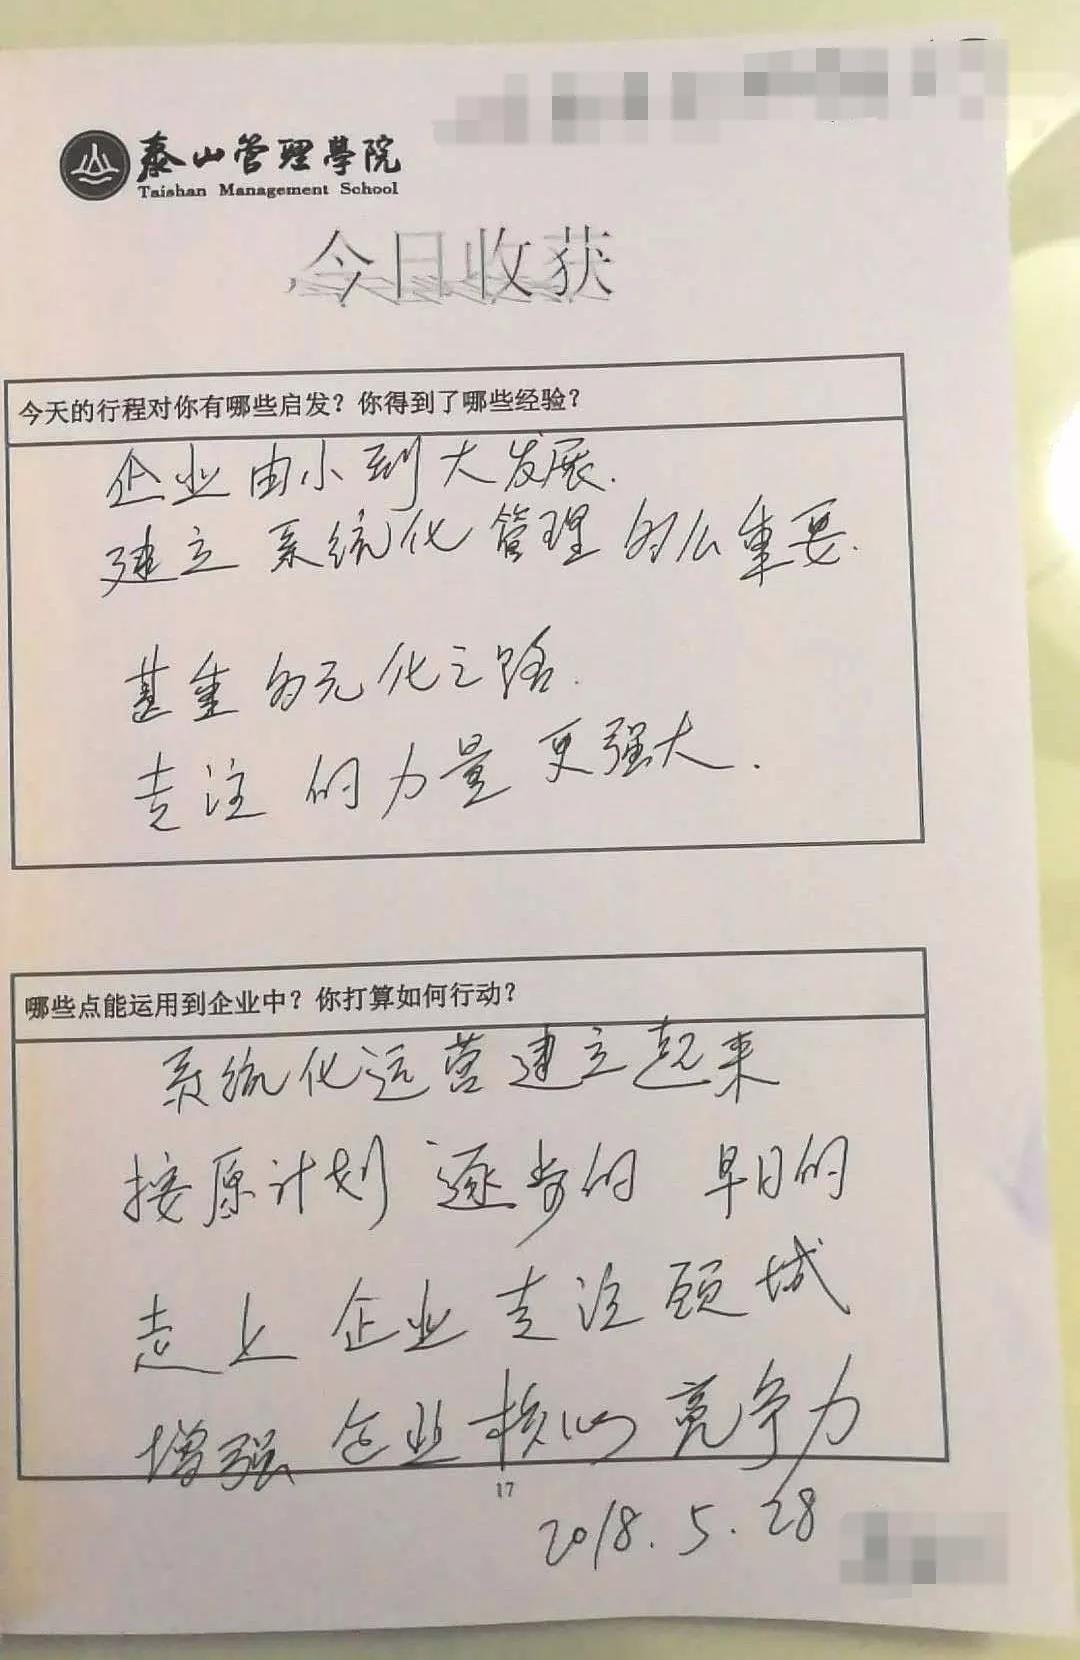 泰山管理學院
Taishan Management School
今日收获
今天的行程对你有哪些启发？你得到了哪些经验？
企业由小到大发展.
建立系统化管理的么重要.
基重的元化之路.
专注的力量更强大.
哪些点能运用到企业中？你打算如何行动？
系统化运营建立起来
按原计划 逐步的 早日的
走上企业专注领域
增强企业核心竞争力
17
2018.5.28